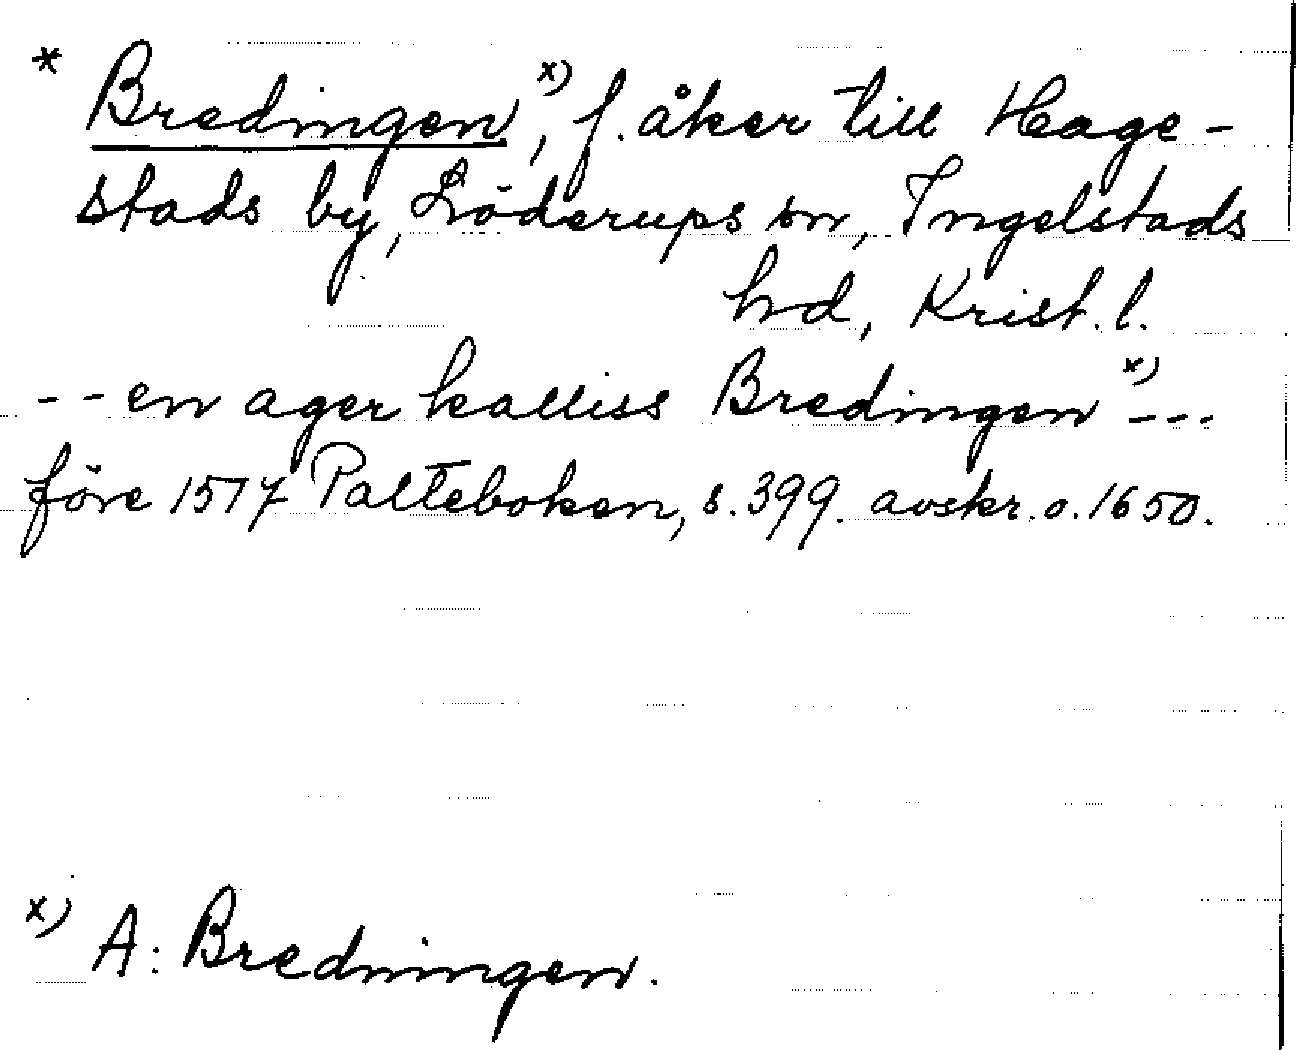 * Bredingen x), f. åker till Hage-
stads by, Löderups sn, Ingelstads
hd, Krist. l.
-- en ager kalliss Bredingen x) ---
före 1517 Palteboken, s. 399. avskr. o. 1650.
x) A: Bredningen.